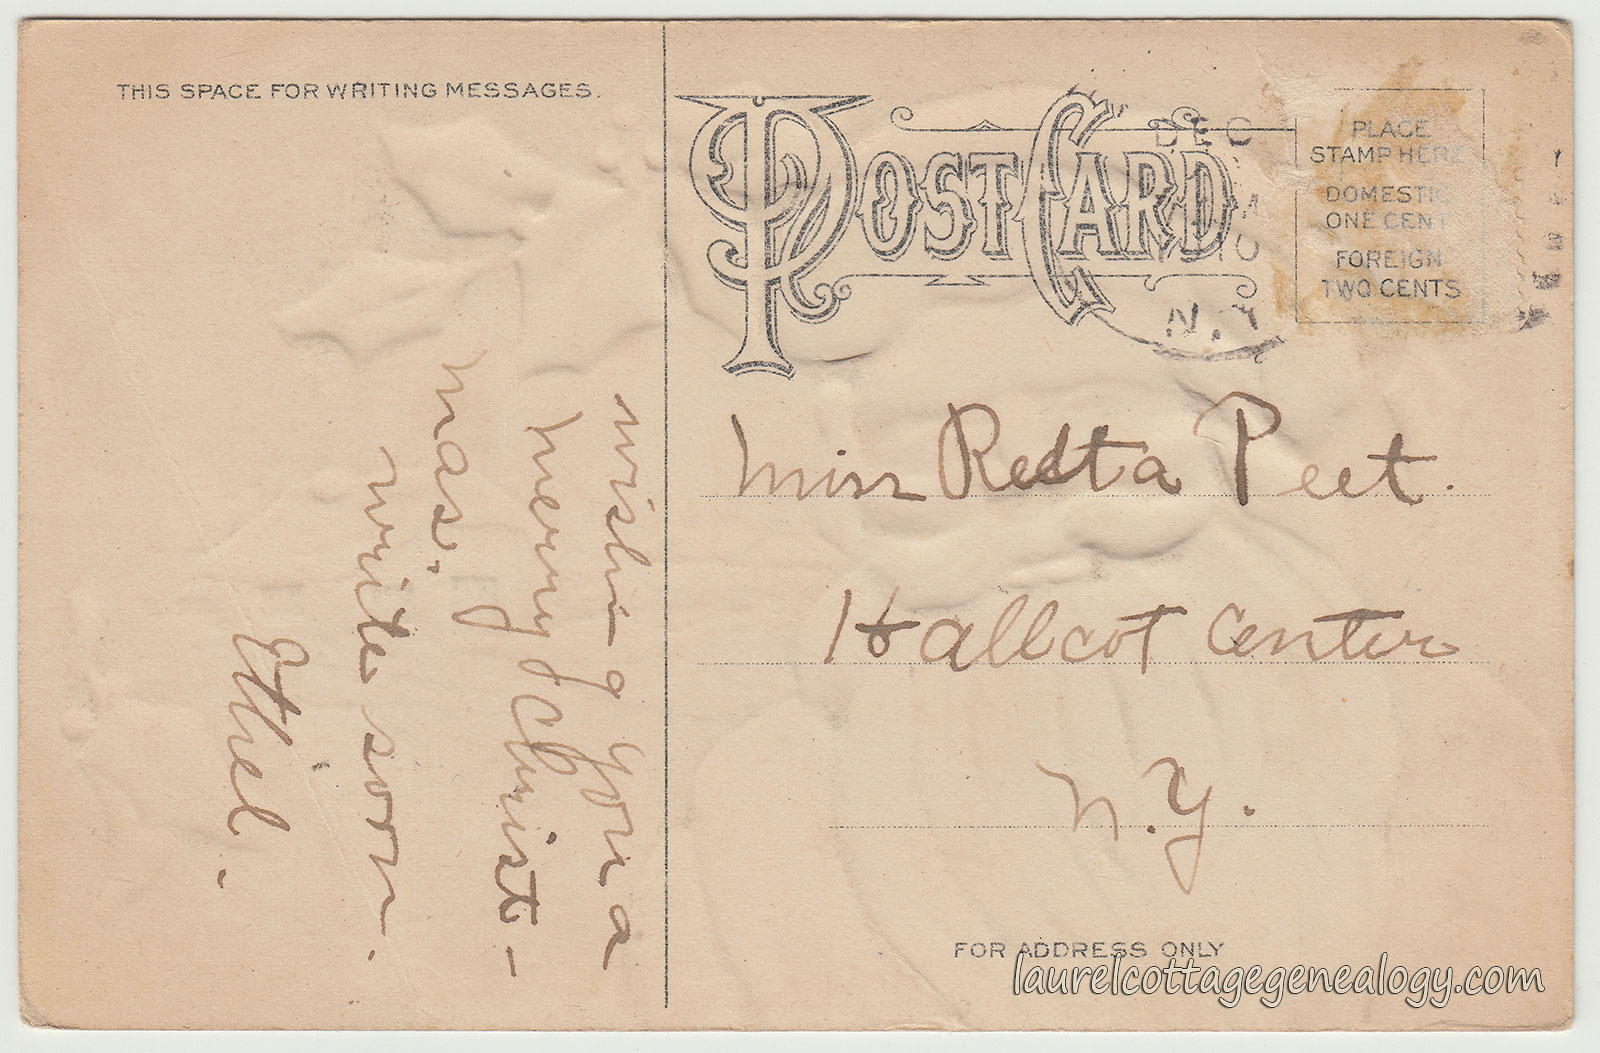 THIS SPACE FOR WRITING MESSAGES.
wishing you a
merry Christ-
mas.
write soon.
Ethel.
POST CARD
DEC
N.Y
PLACE
STAMP HERE
DOMESTIC
ONE CENT
FOREIGN
TWO CENTS
Miss Retta Peet.
Hallcot Center
N.Y.
FOR ADDRESS ONLY
laurelcottagegenealogy.com